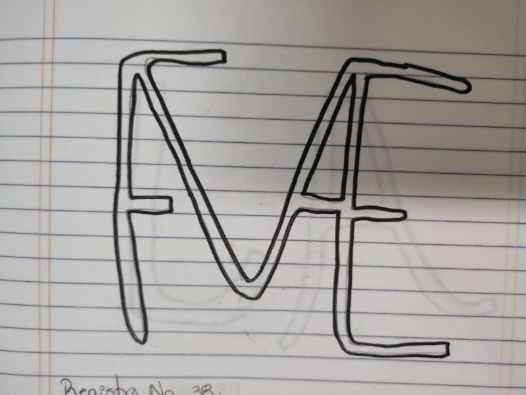 FME
Registro No 38.